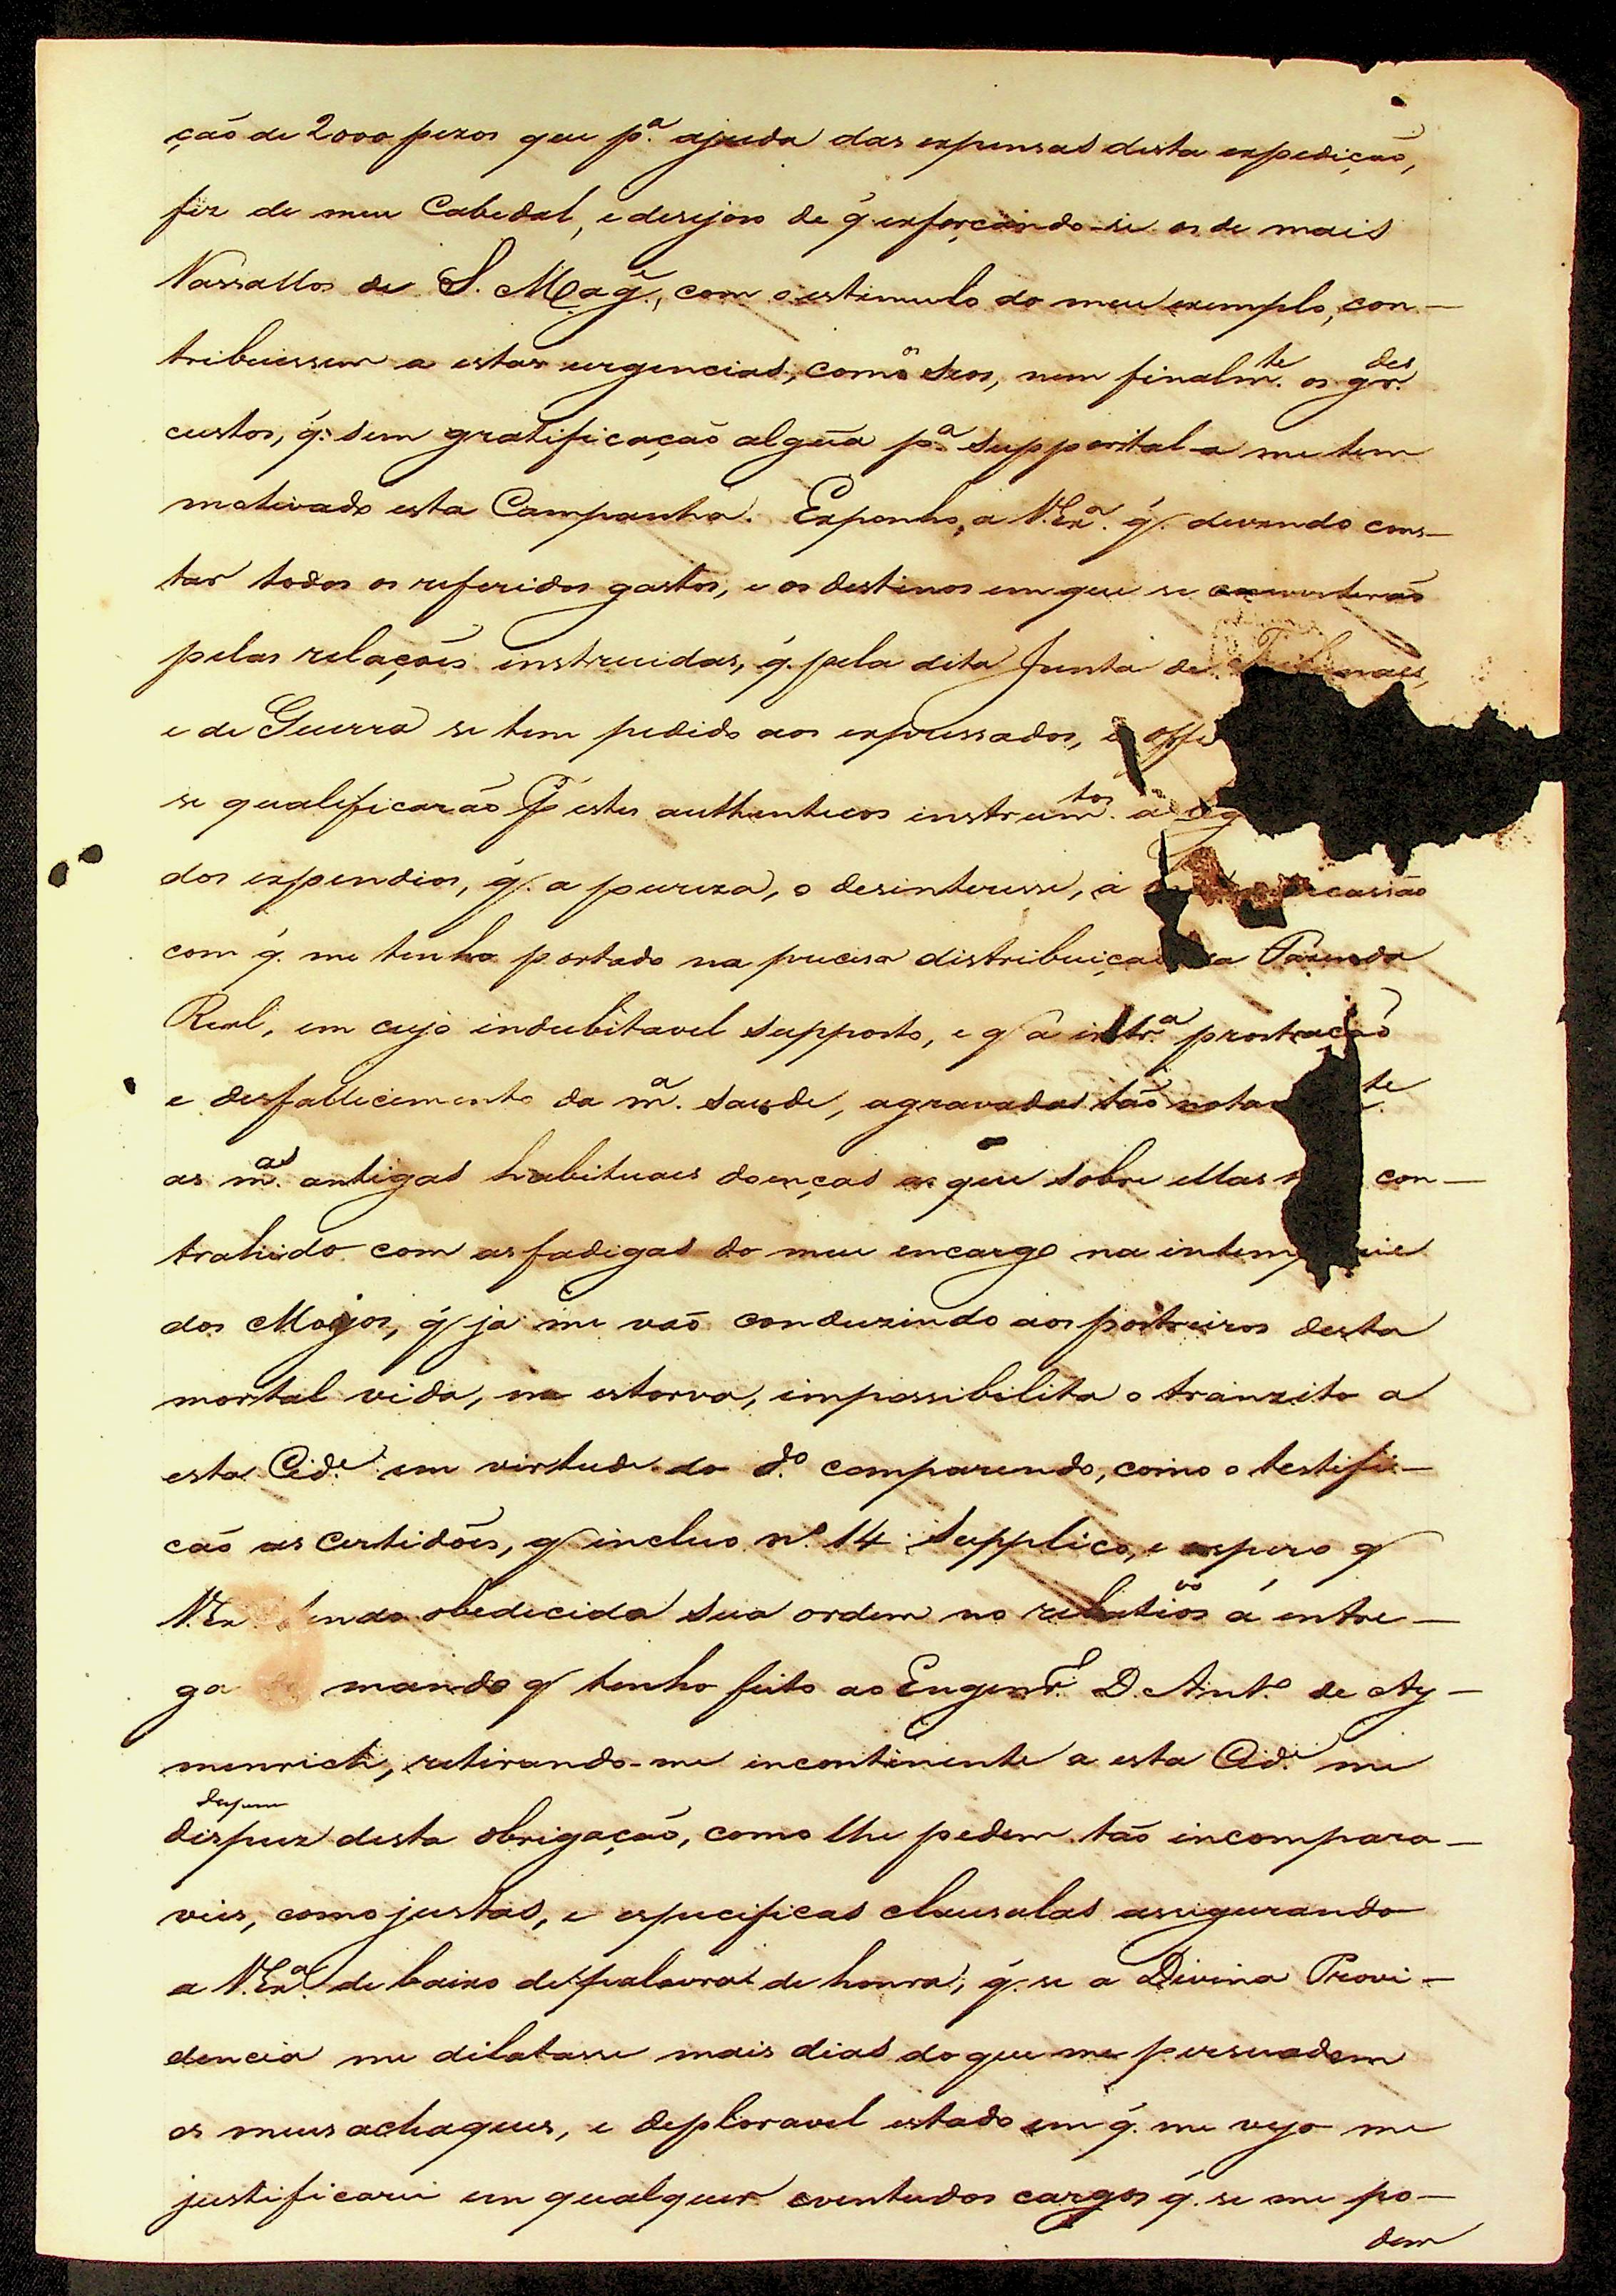 ção de 2000 pezos que p.ª ajuda das expensas desta expedição,
fiz de meu Cabedal, e desejoso de q̃ exforçando-se os de mais
Vassallos de S. Mag.ᵉ, com o estimulo do meu exemplo, con-
tribuissem a estas urgencias, como os seos, nem finalm.ᵗᵉ os gr.ᵈᵉˢ
custos, q̃. sem gratificação algũa p.ª supportal-a me tem
motivado esta Campanha. Exponho, a V. Ex.ª q̃. devendo cons-
tar todos os referidos gastos, e os destinos em que se converterão
pelas relações instruidas, q̃. pela dita Junta de Tribunaes,
e de Guerra se tem pedido aos expressados, e offi
se qualificarão P estes authenticos instrum.ᵗᵒˢ a
dos expendios, q̃. a pureza, o desinteresse, a casião
com q̃. me tenho portado na precisa distribuição da Fazenda
Real, em cujo indubitavel supposto, e q̃ a intr.ª prostração
e desfallecimento da m.ª saude, agravadas tão nota te
as m.ᵃˢ antigas habituaes doenças as que sobre ellas con-
trahido com as fadigas do meu encargo na intemp rie
dos Mojos, q̃ ja me vaõ conduzindo aos postreiros desta
mortal vida, me estorva, impossibilita o tranzito a
esta Cid.ᵉ em virtude do d.º comparendo, como o testifi-
cão as Certidões, q̃ incluo n.º 14. Supplico, e espero q̃
V. Ex. endo obedecida sua ordem no relativo á entre-
ga mando q̃ tenho feito ao Engenr.º D. Ant.º de Ay-
menrich, retirando-me incontinente a esta Cid.ᵉ me
dispen
dispuz desta obrigação, como lhe pedem tão incompara-
veis, como justas, e especificas clausulas assegurando
a V. Ex.ª de baixo de palavra de honra, q̃. se a Divina Provi-
dencia me dilatasse mais dias do que me persuadem
os meus achaques, e deploravel estado em q̃. me vejo me
justificarei em qualquer evento dos cargos q̃. se me po-
dem